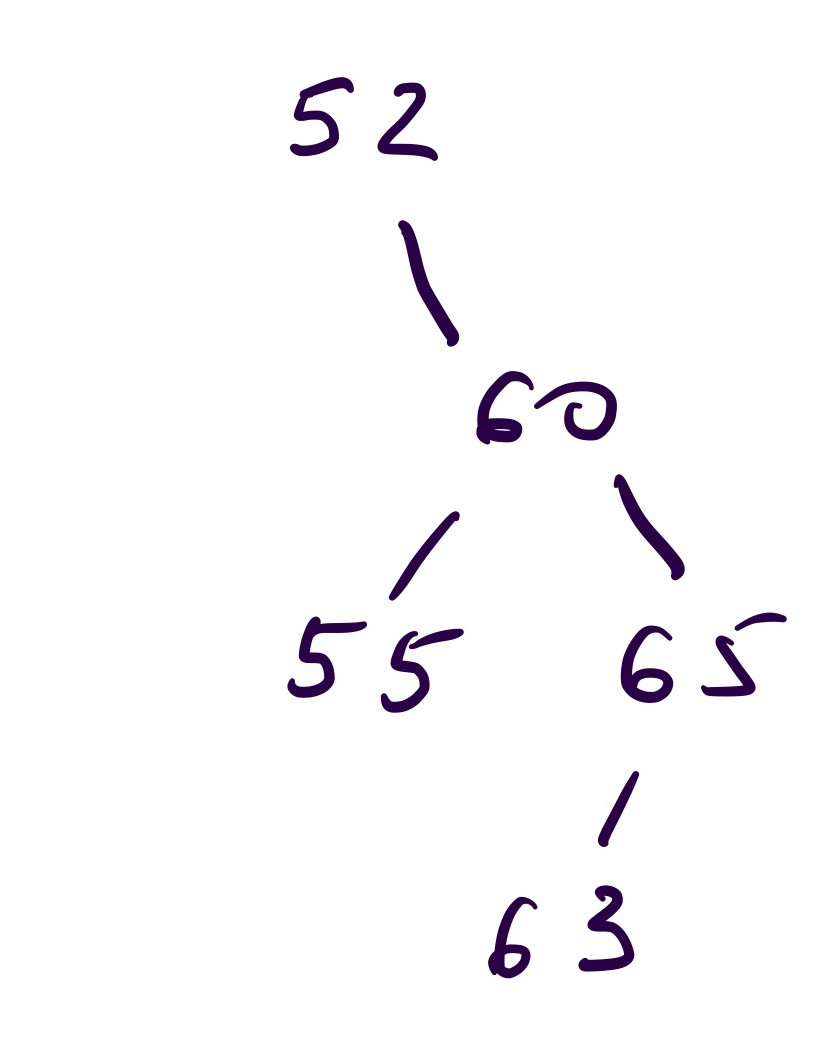 52
60
55 65
63